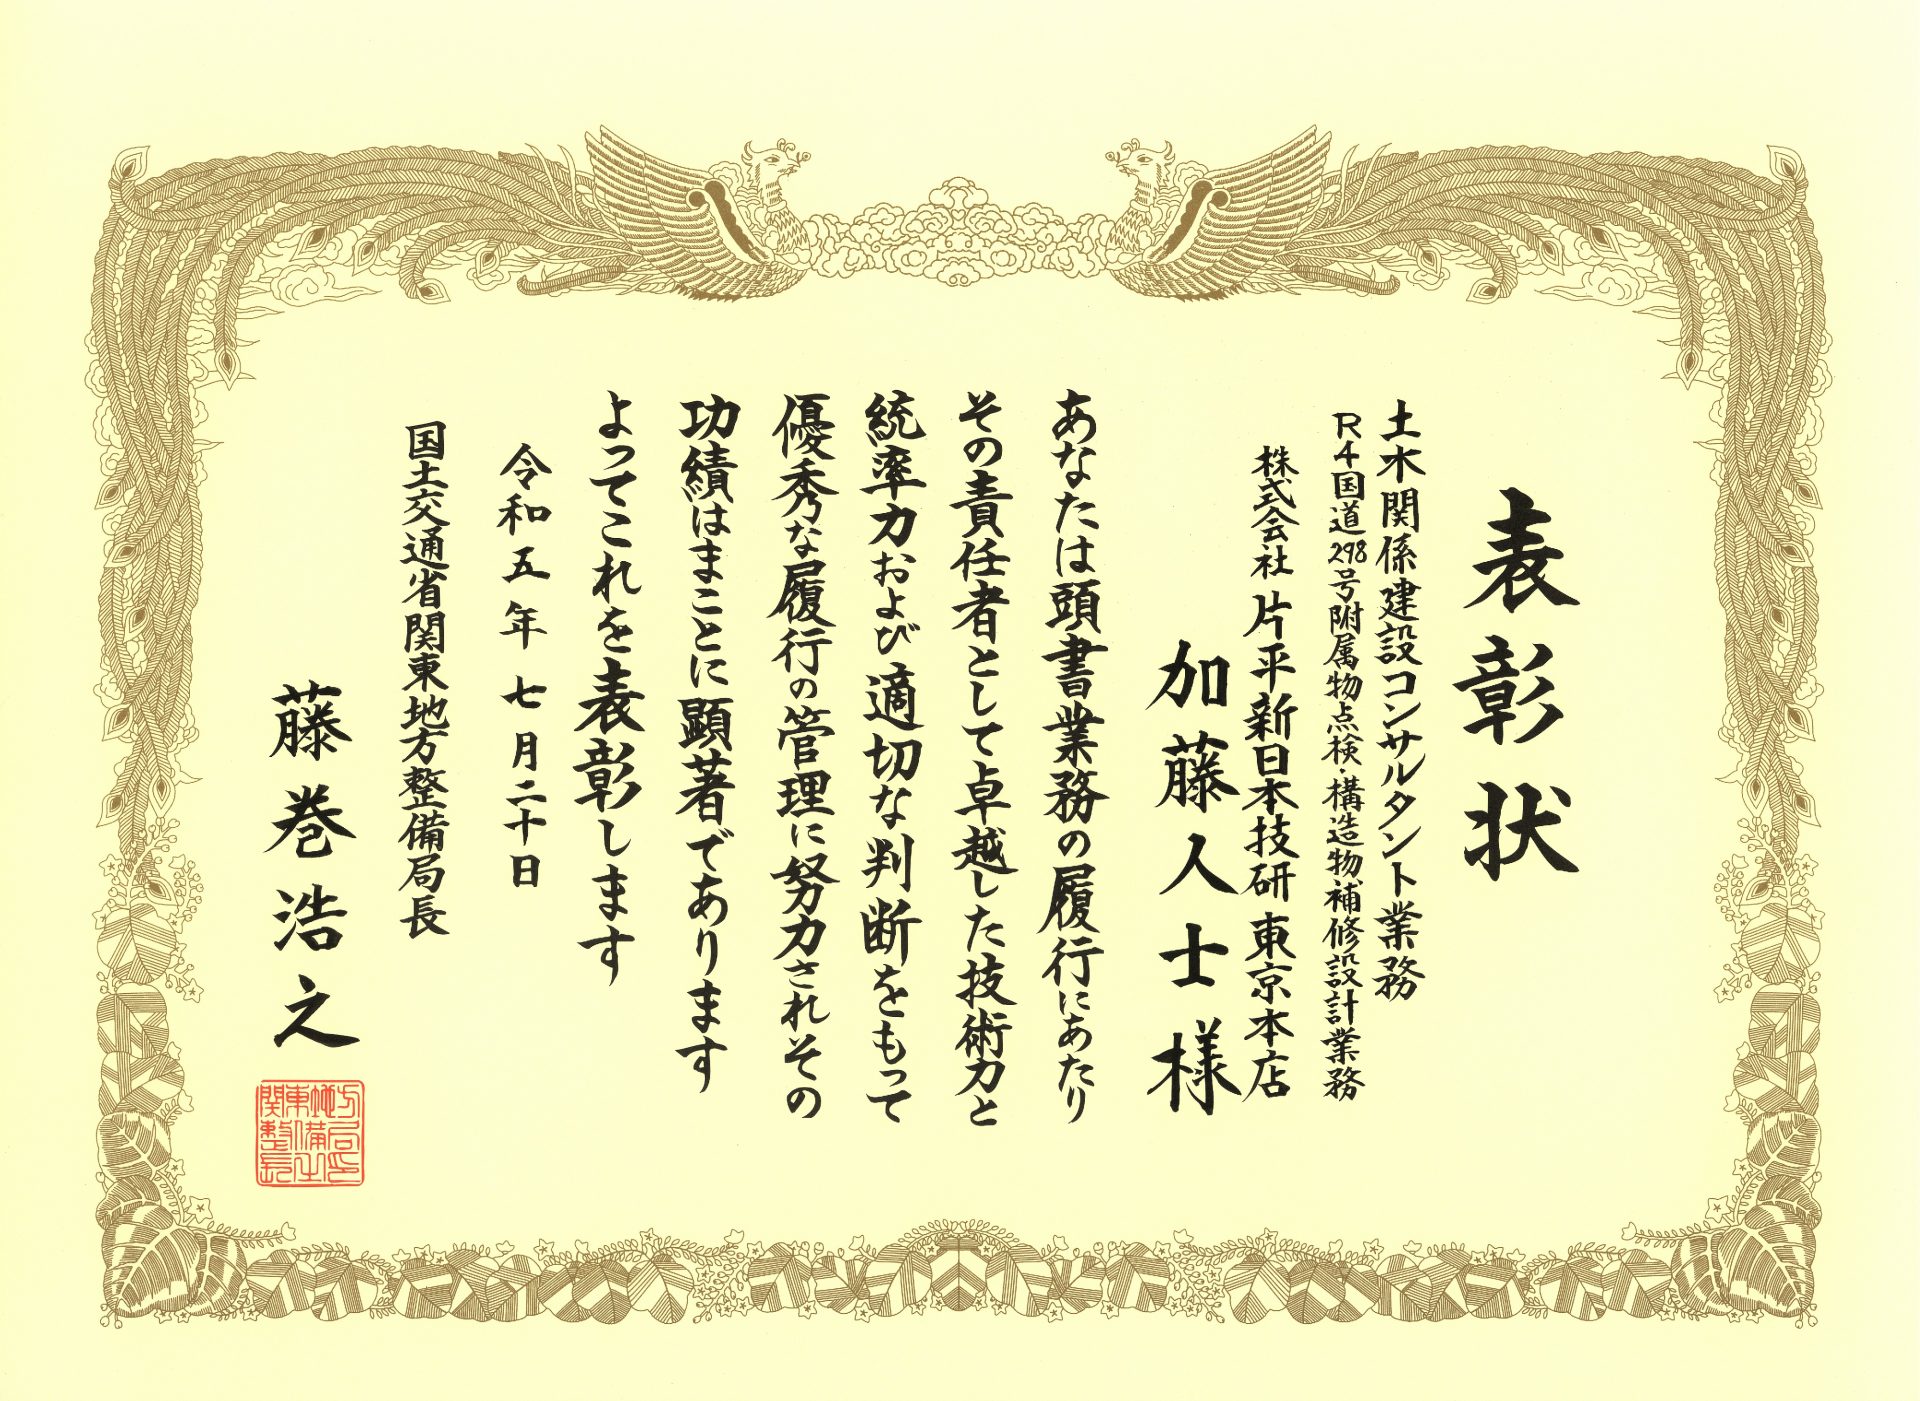 表彰状
土木関係建設コンサルタント業務
R4国道298号附属物点検・構造物補修設計業務
株式会社 片平新日本技研 東京本店
加藤人士様
あなたは頭書業務の履行にあたり
その責任者として卓越した技術力と
統率力および適切な判断をもって
優秀な履行の管理に努力されその
功績はまことに顕著であります
よってこれを表彰します
令和五年七月二十日
国土交通省関東地方整備局長
藤巻浩之